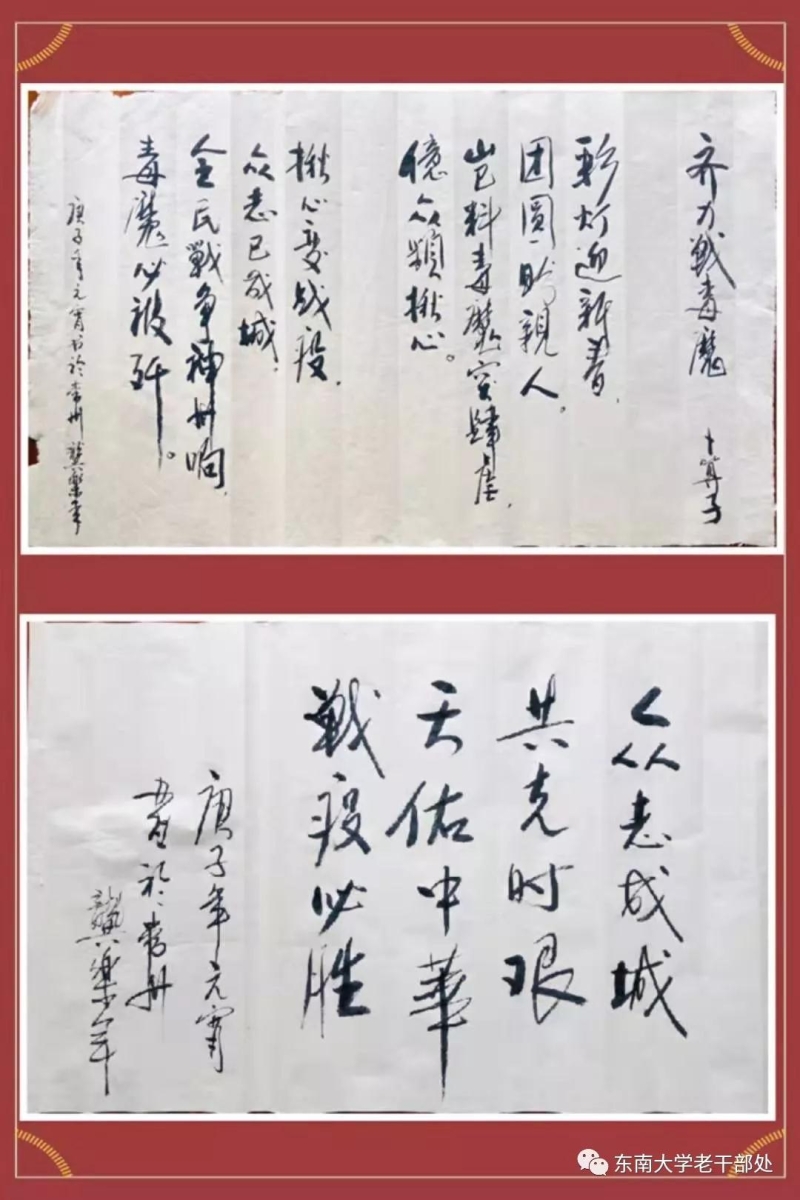 齐力战毒魔
卜算子
彩灯迎新春，
团圓盼親人。
岂料毒魔突肆虐，
億众頻揪心。
揪心变战疫，
众志已成城，
全民戰争神州响，
毒魔必被歼。
庚子年元宵书於常州 龔樂年
众志成城
共克时艰
天佑中華
戰疫必胜
庚子年元宵
書於常州
龔樂年
东南大学老干部处